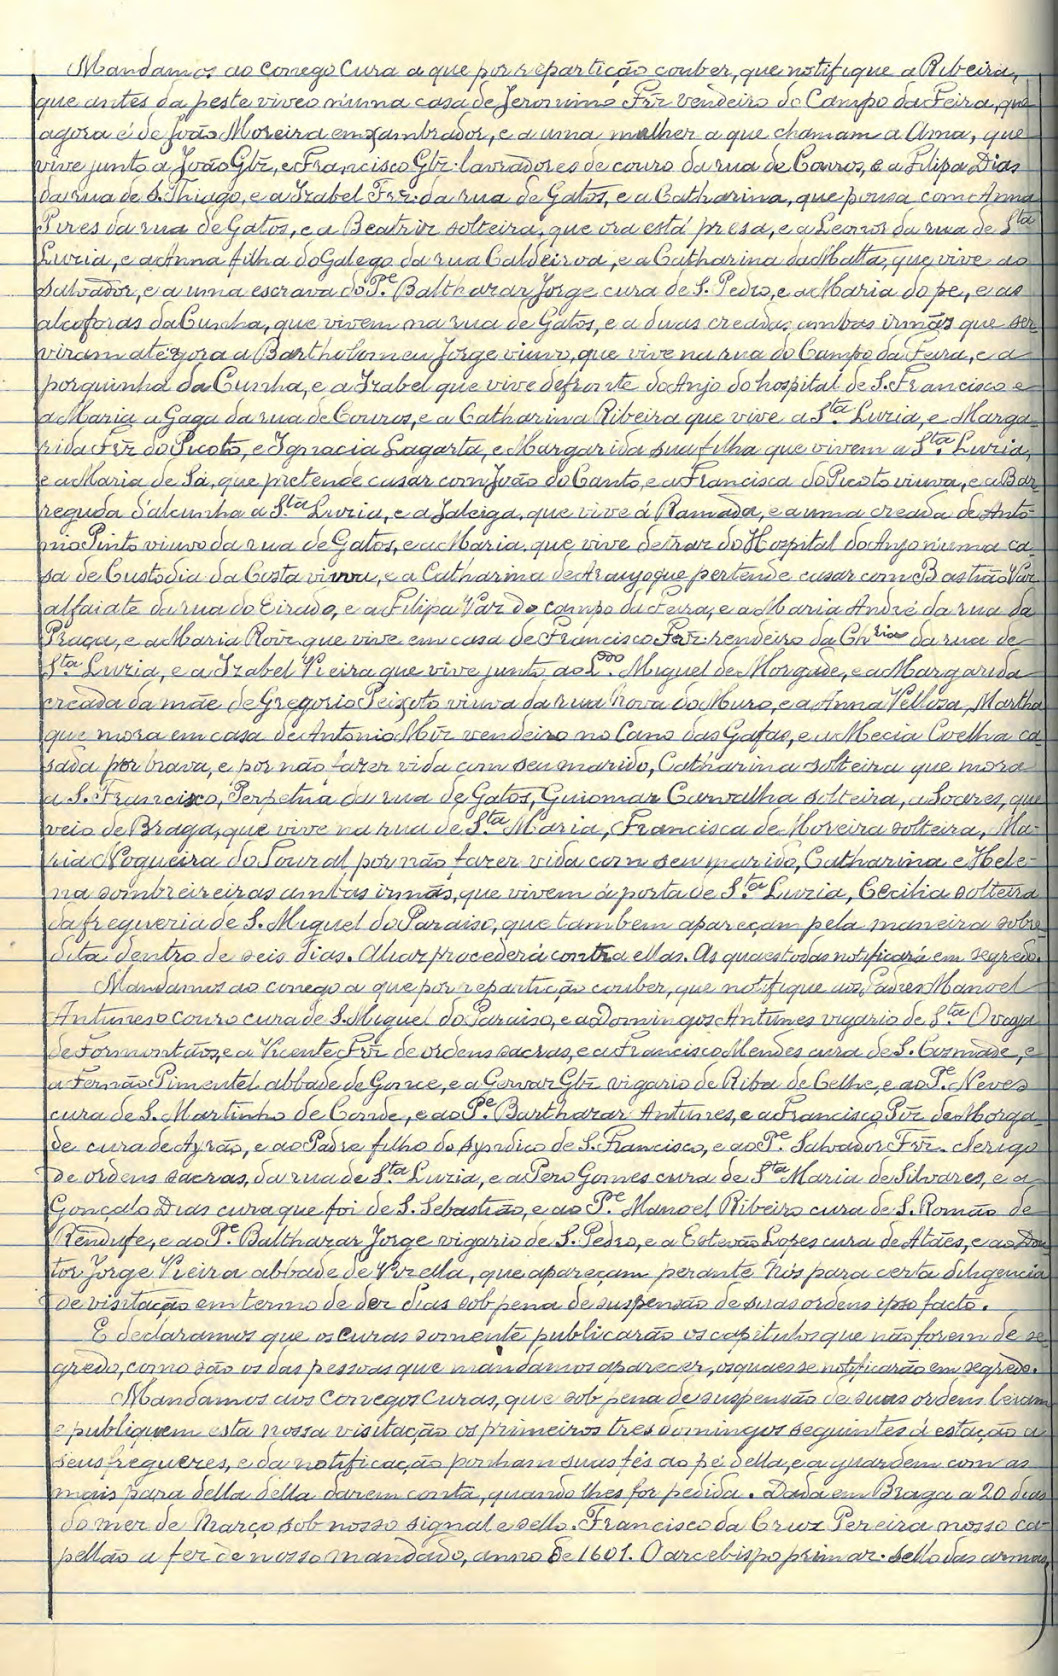 Mandamos ao conego Cura a que por repartição couber, que notifique a Ribeira,
que antes da peste viveo n'uma casa de Jeronimo Frz vendeiro do Campo da Feira, que
agora é de João Moreira enxambrador, e a uma mulher a que chamam a Ama, que
vive junto a João Glz, e Francisco Glz. lavradores de couro da rua de Couros, e a Filipa Dias
da rua de S. Thiago, e a Izabel Frz. da rua de Gatos, e a Catharina, que pousa com Anna
Pires da rua de Gatos, e a Beatriz solteira, que ora está presa, e a Leonor da rua de Sta
Luzia, e a Anna filha do Galego da rua Caldeirôa, e a Catharina da Matta, que vive ao
Salvador, e a uma escrava do Pe. Balthazar Jorge cura de S. Pedro, e a Maria do pe, e as
alcoforas da Cunha, que vivem na rua de Gatos, e a duas creadas ambas irmãs que ser-
viram até gora a Bartholomeu Jorge viuvo, que vive na rua do Campo da Feira, e a
porquinha da Cunha, e a Izabel que vive defronte do Anjo do hospital de S. Francisco e
a Maria a Gaga da rua de Couros, e a Catharina Ribeira que vive a Sta Luzia, e Marga-
rida Frz do Picoto, e Ignacia Lagarta, e Margarida sua filha que vivem a Sta. Luzia,
e a Maria de Sá, que pretende casar com João do Canto, e a Francisca do Picoto viuva, e a Bar-
reguda d'alcunha a Sta Luzia, e a Jaleiga, que vive á Ramada, e a uma creada de Anto-
nio Pinto viuvo da rua de Gatos, e a Maria, que vive detraz do Hospital do Anjo n'uma ca-
sa de Custodia da Costa viuva, e a Catharina de Araujo que pertende casar com Bastião Vaz
alfaiate da rua do Eirado, e a Filipa Vaz do campo da Feira, e a Maria André da rua da
Praça, e a Maria Roiz que vive em casa de Francisco Frz. rendeiro da Chria da rua de
Sta Luzia, e a Izabel Vieira que vive junto ao Ldo. Miguel de Morgade, e a Margarida
creada da mãe de Gregorio Peixoto viuva da rua Nova do Muro, e a Anna Vellosa, Martha
que mora em casa de Antonio Miz vendeiro no Cano das Gafas, e a Mecia Coelha ca-
sada por brava, e por não fazer vida com seu marido, Catharina solteira que mora
a S. Francisco, Perpetua da rua de Gatos, Guiomar Carvalha solteira, a Soares, que
veio de Braga, que vive na rua de Sta Maria, Francisca de Moreira solteira, Ma-
ria Nogueira do Toural por não fazer vida com seu marido, Catharina e Hele-
na sombreireiras ambas irmãs, que vivem á porta de Sta Luzia, Cecilia solteira
da freguezia de S. Miguel do Paraiso, que tambem apareçam pela maneira sobre-
dita dentro de seis dias. Aliaz procederá contra ellas. As quaes todas notificará em segredo.
Mandamos ao conego a que por repartição couber, que notifique aos Padres Manoel
Antunes o Couro cura de S. Miguel do Paraiso, e a Domingos Antunes vigario de Sta Ovaya
de Formontãos, e a Vicente Frz de ordens sacras, e a Francisco Mendes cura de S. Cosmade, e
a Fernão Pimentel abbade de Gonce, e a Gonçar Glz vigario de Riba de Celhe, e ao Pe. Neves
cura de S. Martinho de Conde, e ao Pe. Barthazar Antunes, e a Francisco Piz de Morga-
de cura de Ayrão, e ao Padre filho do syndico de S. Francisco, e ao Pe Salvador Frz. clerigo
de ordens sacras, da rua de Sta Luzia, e a Pero Gomes cura de Sta Maria de Silvares, e a
Gonçalo Dias cura que foi de S. Sebastião, e ao Pe Manoel Ribeiro cura de S. Romão de
Rendufe, e ao Pe. Balthazar Jorge vigario de S. Pedro, e a Estevão Lopes cura de Atães, e ao Dou-
tor Jorge Vieira abbade de Vizella, que apareçam perante Nós para certa diligencia
de visitação em termo de dez dias sob pena de suspensão de suas ordens ipso facto.
E declaramos que os curas somente publicarão os capitulos que não forem de se-
gredo, como são os das pessoas que mandamos aparecer, os quaes se notificarão em segredo.
Mandamos aos Conegos Curas, que sob pena de suspensão de suas ordens leiam
e publiquem esta nossa visitação os primeiros tres domingos seguintes á estação a
seus freguezes, e da notificação ponham suas fés ao pé della, e a guardem com as
mais para della della darem conta, quando lhes for pedida. Dada em Braga a 20 dias
do mez de Março sob nosso signal e sello. Francisco da Cruz Pereira nosso ca-
pellão a fez de nosso mandado, anno de 1601. O arcebispo primaz. Sello das armas,